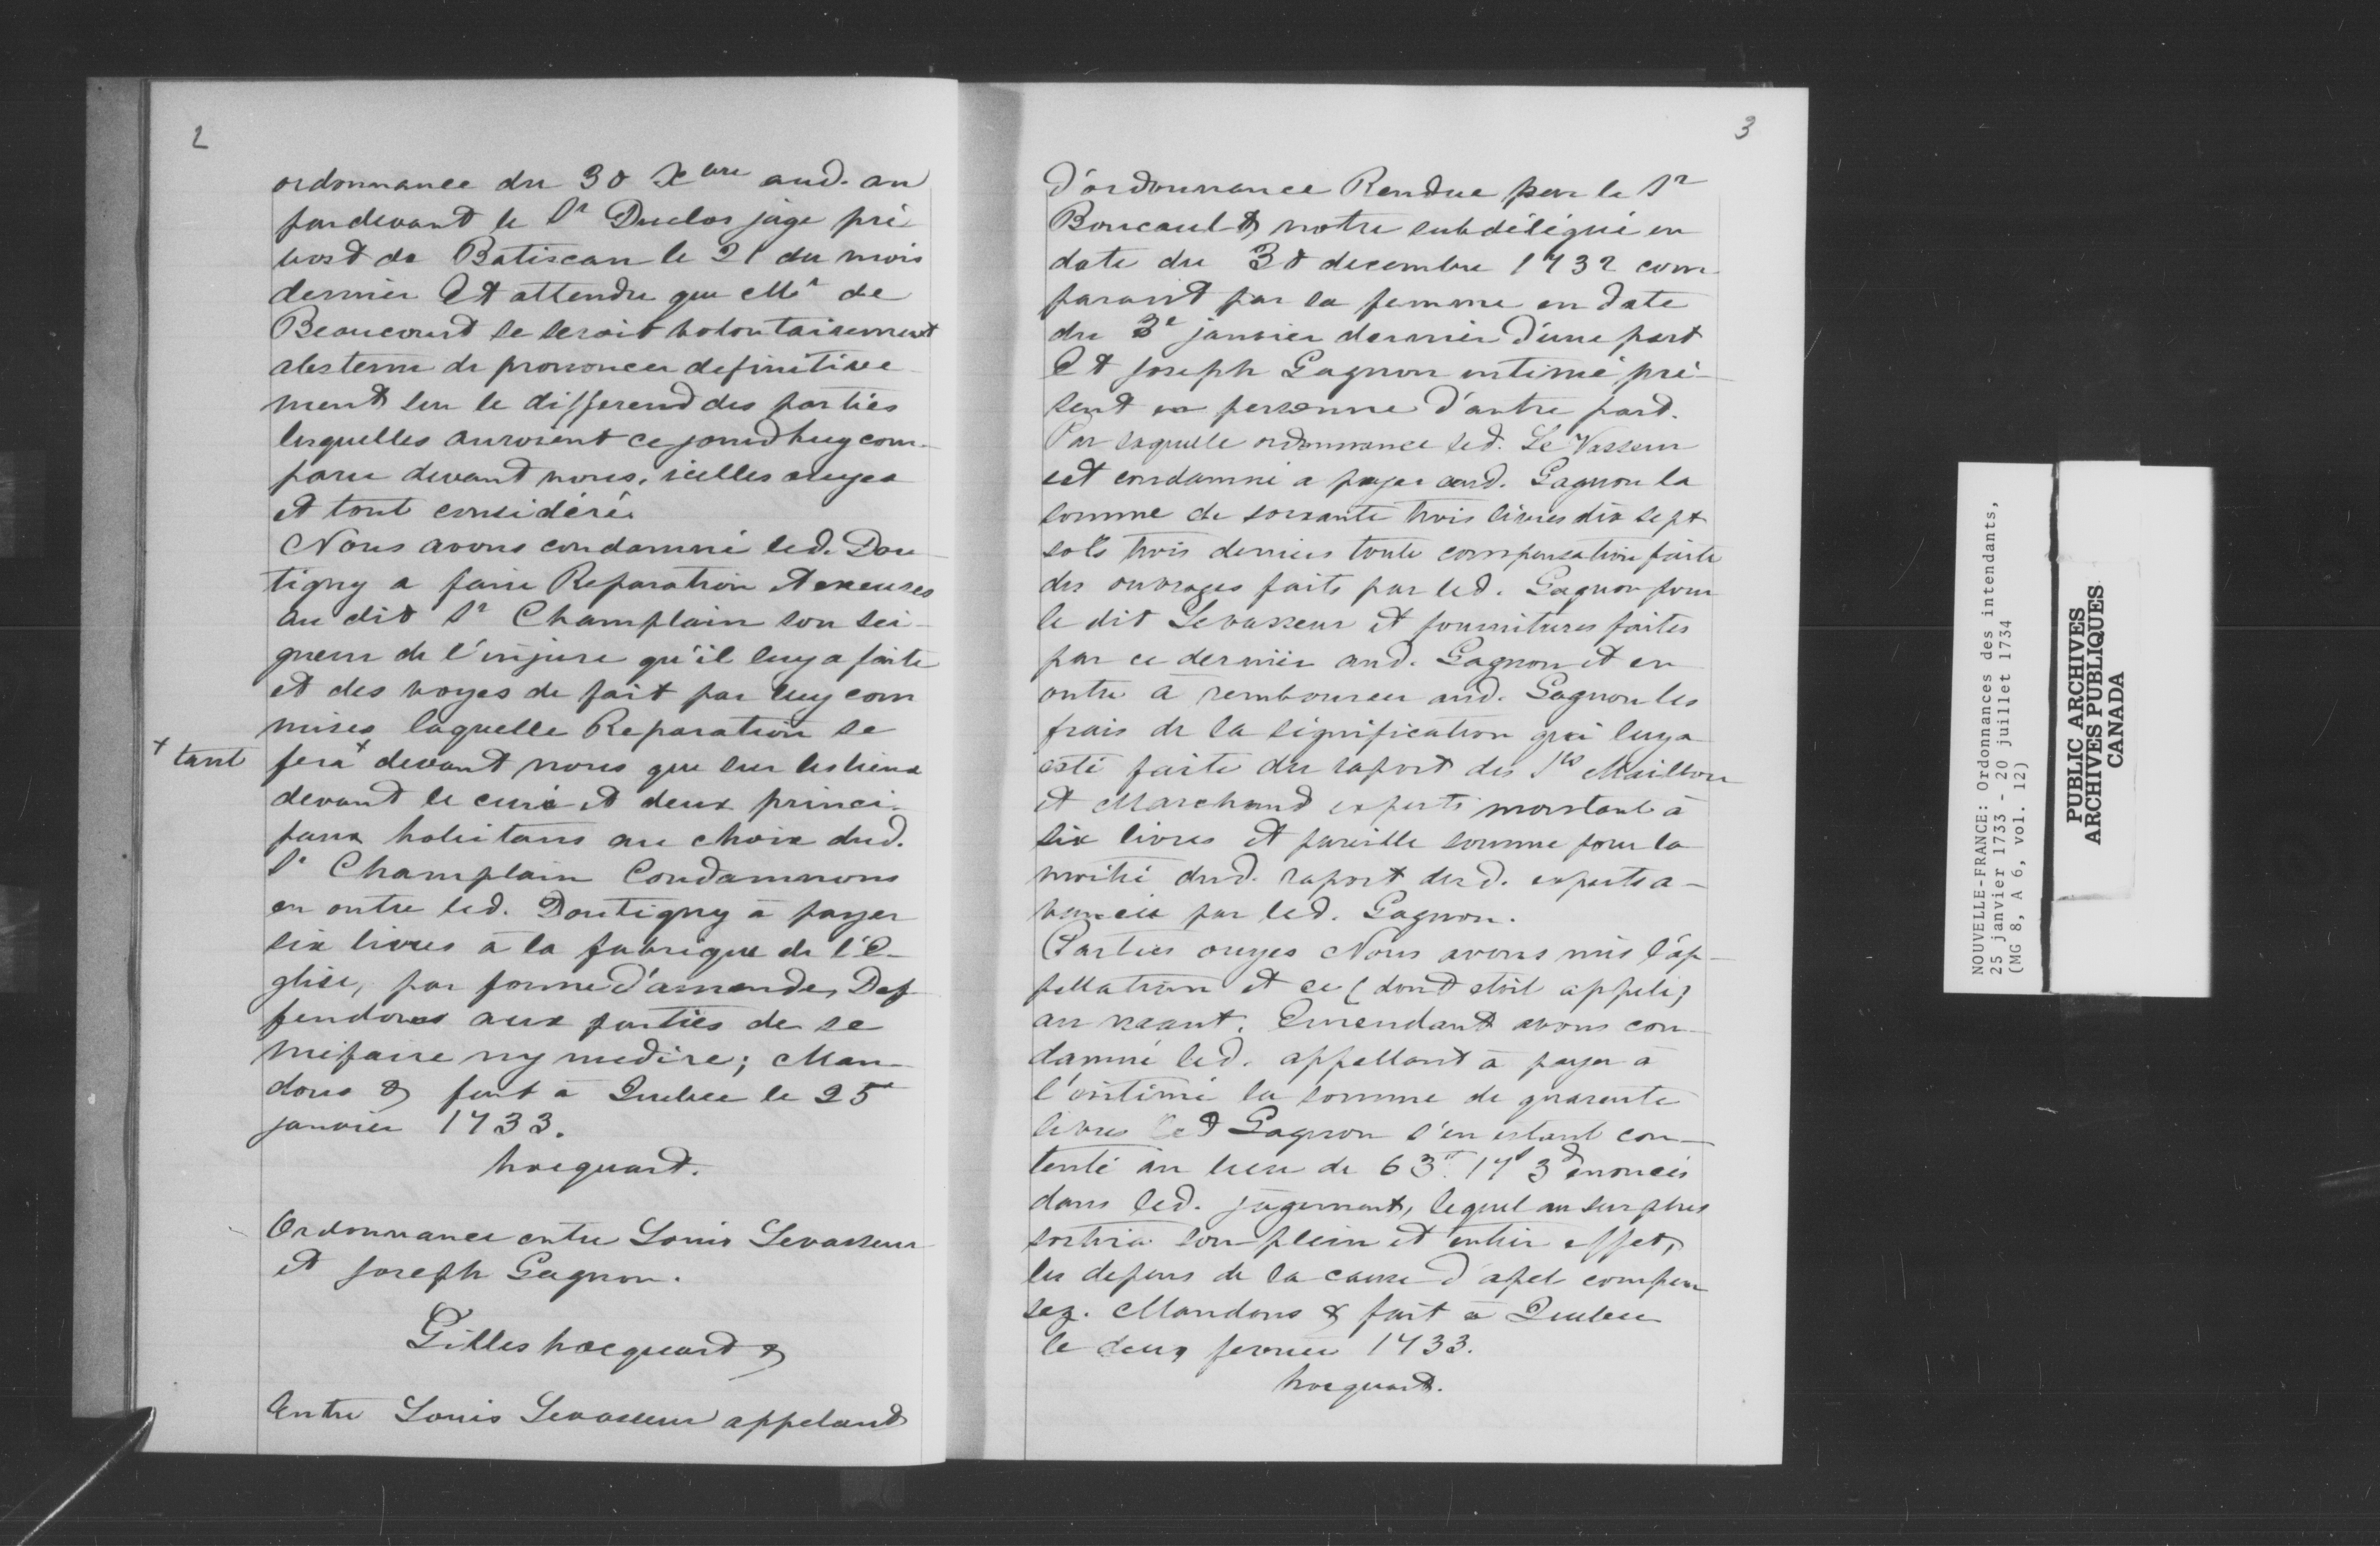 2
ordonnance du 30 Xbre aud. an
pardevant le Sr Duclos juge pré
vost de Batiscan le 21 du mois
dernier Et attendu que Mr de
Beaucourt se seroit volontairement
abstenu de prononcer definitive
ment sur le differend des parties
lesquelles auroient ce jourdhuy com-
paru devant nous, icelles ouyes
et tout considéré
Nous avons condamné led. Dou
tigny a faire Reparation et excuses
au dit Sr Champlain son sei-
gneur de l'injure qu'il luy a faite
et des voyes de fait par luy com
mises laquelle Reparation se
+ tant
fera + devant nous que sur les lieux
devant le curé et deux princi-
paux habitans au choix dud.
Sr Champlain Condamnons
en outre led. Doutigny à payer
six livres à la fabrique de l'E-
glise, par forme d'amende, Def
fendons aux parties de se
mefaire ny medire; Man-
dons & fait à Quebec le 25e
janvier 1733.
hocquart.
Ordonnance entre Louis Levasseur
et Joseph Gagnon.
Gilles hocquart &
Entre Louis Levasseur appelant
3
d'ordonnance Rendue par le Sr
Boucault notre subdélégué en
date du 30 decembre 1732 com
parant par sa femme en date
du 3e janvier dernier d'une part
Et Joseph Gagnon intimé pré-
sent en personne d'autre part.
Par laquelle ordonnance led. Le Vasseur
est condamné a payer aud. Gagnon la
somme de soixante trois livres dix sept
sols trois deniers toute compensation faite
des ouvrages faits par led. Gagnon pour
le dit Levasseur et fournitures faites
par ce dernier aud. Gagnon et en
outre à rembourser aud. Gagnon les
frais de la signification qui luy a
esté faite du raport des Srs Maillou
et Marchand experts montant à
six livres et pareille somme pour la
moitié dud. raport desd. experts a-
vancée par led. Gagnon.
Parties ouyes Nous avons mis l'ap-
pellation et ce (dont etoit appelé)
au neant. Emendant avons con-
damné led. appellant à payer à
l'intimé la somme de quarente
livres led Gagnon s'en estant con-
tenté au lieu de 63tt. 17s 3d enoncés
dans led. jugement, lequel au surplus
sortira son plein et entier effet,
les depens de la cause d'apel compen
sez. Mandons & fait à Quebec
le deux fevrier 1733.
hocquart.
NOUVELLE-FRANCE: Ordonnances des intendants,
25 janvier 1733 - 20 juillet 1734
(MG 8, A 6, vol. 12)
PUBLIC ARCHIVES
ARCHIVES PUBLIQUES
CANADA